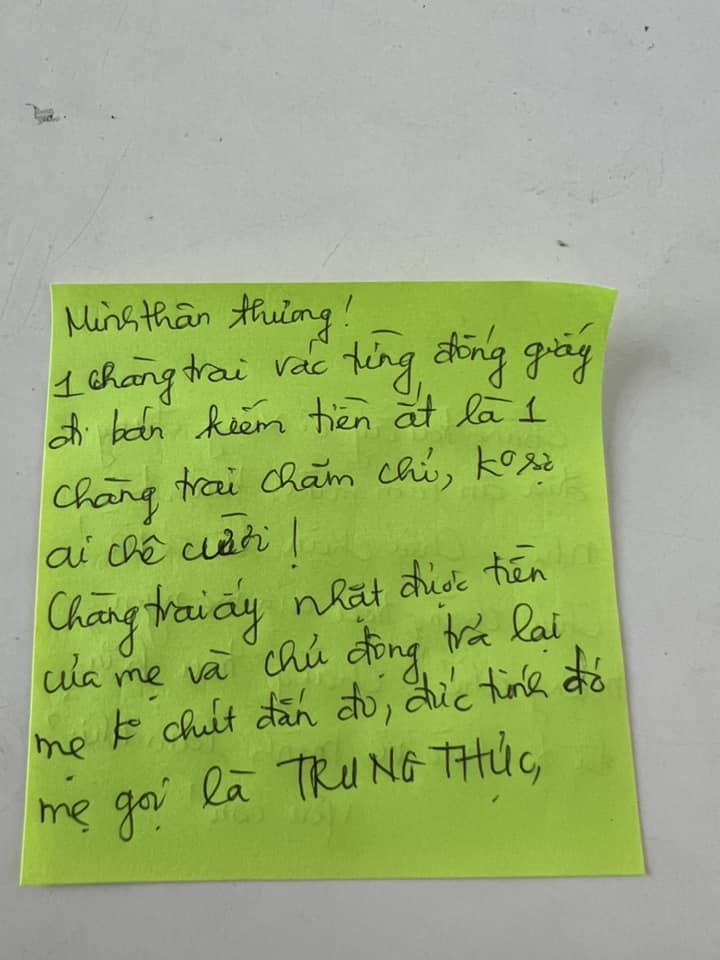 Minh thân thương!
1 chàng trai vác từng đống giấy
đi bán kiếm tiền ắt là 1
chàng trai chăm chỉ, ko sợ
ai chê cười!
Chàng trai ấy nhặt được tiền
của mẹ và chủ động trả lại
mẹ k chút đắn đo, đức tính đó
mẹ gọi là TRUNG THỰC,